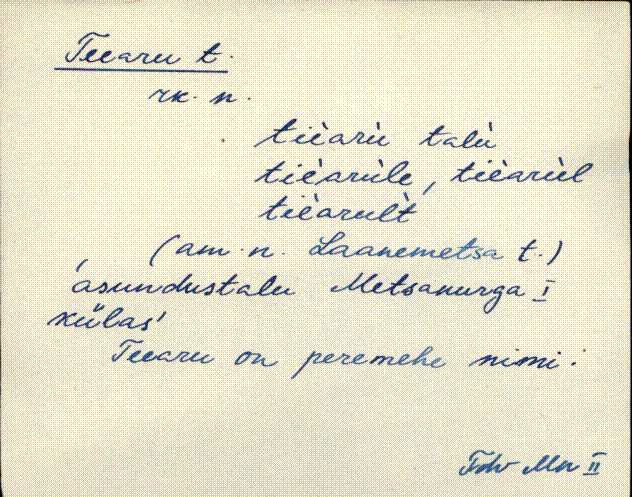 Teearu t.
rk. n.
tièarù talù
tièarùle, tièarùl
tièarùlt
(am. n. Laanemetsa t.)
'asundustalu Metsanurga I
külas'
Teearu on peremehe nimi.
Mn II